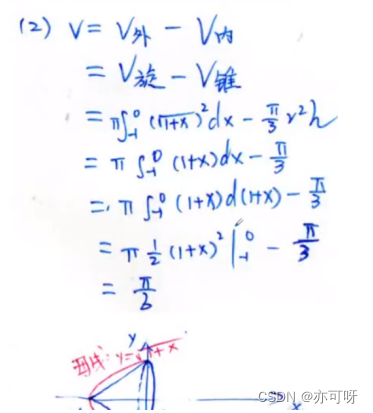 (2) V = V外 - V内
= V旋 - V锥
= π∫₋₁⁰ (√1+x)² dx - π/3 r²h
= π ∫₋₁⁰ (1+x)dx - π/3
= π ∫₋₁⁰ (1+x)d(1+x) - π/3
= π 1/2 (1+x)² |₋₁⁰ - π/3
= π/6
y
母线: y=√1+x
x
CSDN @亦可呀